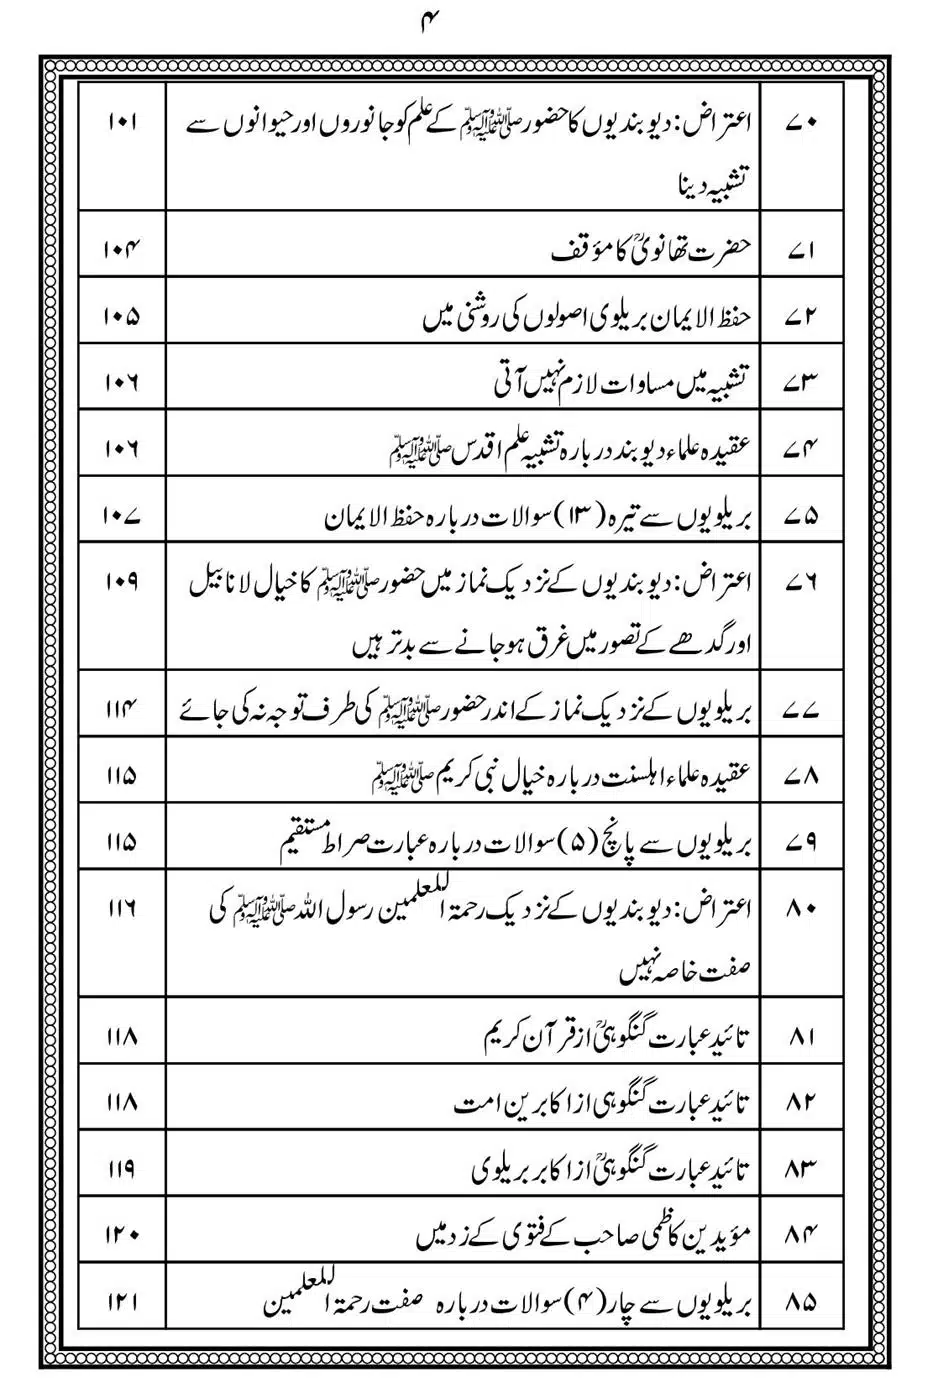 ۴
۷۰ اعتراض: دیوبندیوں کا حضور ﷺ کے علم کو جانوروں اور حیوانوں سے ۱۰۱
تشبیہ دینا
۷۱ حضرت تھانویؒ کا مؤقف ۱۰۴
۷۲ حفظ الایمان بریلوی اصولوں کی روشنی میں ۱۰۵
۷۳ تشبیہ میں مساوات لازم نہیں آتی ۱۰۶
۷۴ عقیدہ علماء دیوبند دربارہ تشبیہ علم اقدس ﷺ ۱۰۶
۷۵ بریلویوں سے تیرہ (۱۳) سوالات دربارہ حفظ الایمان ۱۰۷
۷۶ اعتراض: دیوبندیوں کے نزدیک نماز میں حضور ﷺ کا خیال لانا بیل ۱۰۹
اور گدھے کے تصور میں غرق ہو جانے سے بدتر ہیں
۷۷ بریلویوں کے نزدیک نماز کے اندر حضور ﷺ کی طرف توجہ نہ کی جائے ۱۱۴
۷۸ عقیدہ علماء اہلسنت دربارہ خیال نبی کریم ﷺ ۱۱۵
۷۹ بریلویوں سے پانچ (۵) سوالات دربارہ عبارت صراط مستقیم ۱۱۵
۸۰ اعتراض: دیوبندیوں کے نزدیک رحمۃ اللعلمین رسول اللہ ﷺ کی ۱۱۶
صفت خاصہ نہیں
۸۱ تائید عبارت گنگوہیؒ از قرآن کریم ۱۱۸
۸۲ تائید عبارت گنگوہی از اکابرین امت ۱۱۸
۸۳ تائید عبارت گنگوہیؒ از اکابر بریلوی ۱۱۹
۸۴ مؤیدین کاظمی صاحب کے فتوی کے زد میں ۱۲۰
۸۵ بریلویوں سے چار (۴) سوالات دربارہ صفت رحمۃ اللعلمین ۱۲۱